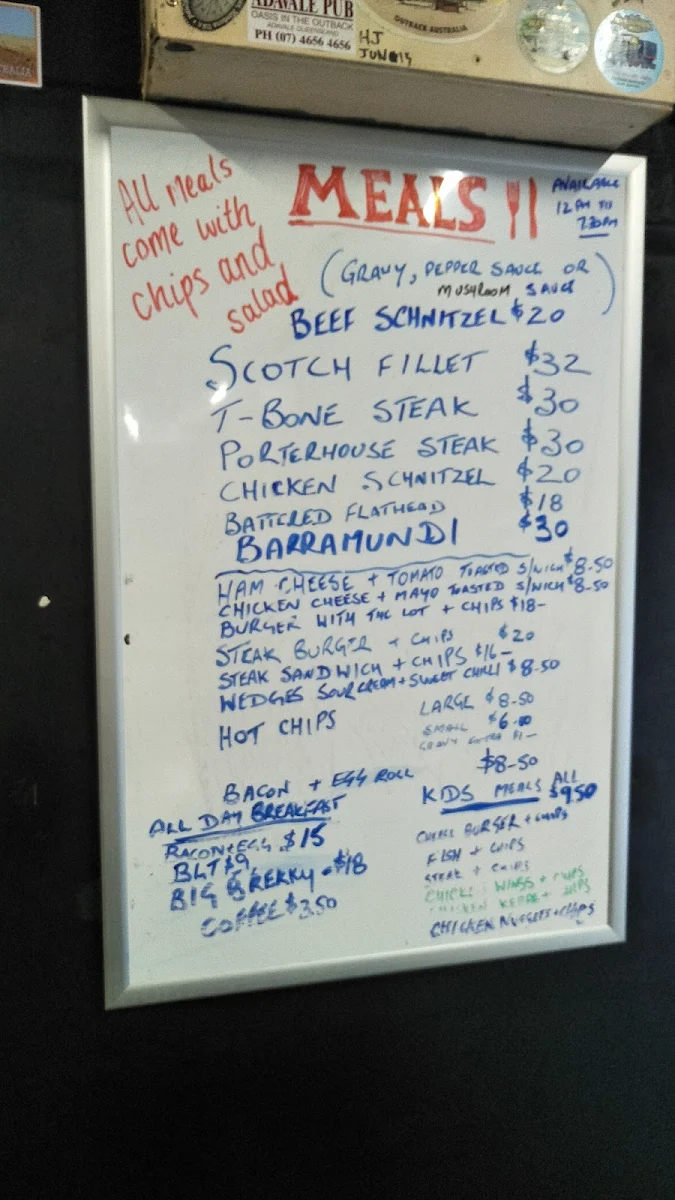 ADAVALE PUB
OASIS IN THE OUTBACK
ADAVALE QUEENSLAND
PH (07) 4656 4656
OUTBACK AUSTRALIA
HJ
All meals
come with
chips and
salad
MEALS
AVAILABLE
12 PM TIL
7.30PM
(GRAVY, PEPPER SAUCE OR
MUSHROOM SAUCE)
BEEF SCHNITZEL $20
SCOTCH FILLET $32
T-BONE STEAK $30
PORTERHOUSE STEAK $30
CHICKEN SCHNITZEL $20
BATTERED FLATHEAD $18
BARRAMUNDI $30
HAM CHEESE + TOMATO TOASTED S/WICH $8-50
CHICKEN CHEESE + MAYO TOASTED S/WICH $8-50
BURGER WITH THE LOT + CHIPS $18-
STEAK BURGER + CHIPS $20
STEAK SANDWICH + CHIPS $16-
WEDGES SOUR CREAM + SWEET CHILLI $8-50
HOT CHIPS LARGE $8-50
SMALL $6-00
GRAVY EXTRA $1-
BACON + EGG ROLL $8-50
ALL DAY BREAKFAST
BACON + EGG $15
BLT $9
BIG BREKKY - $18
COFFEE $3.50
KIDS MEALS ALL $9.50
CHEESE BURGER + CHIPS
FISH + CHIPS
STEAK + CHIPS
WINGS + CHIPS
CHICKEN NUGGETS + CHIPS